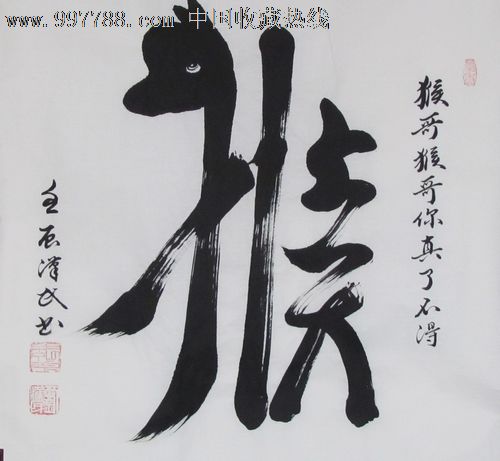 www.997788.com 中国收藏热线
猴
猴哥猴哥你真了不得
壬辰汉民书